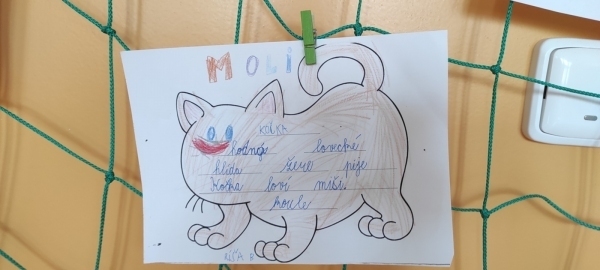 MOLI
kočka
hodná lovecké
hlídá žere pije
Kočka loví myši.
koule
RÍŠA R